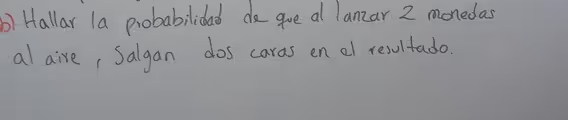 b) Hallar la probabilidad de que al lanzar 2 monedas
al aire, Salgan dos caras en el resultado.